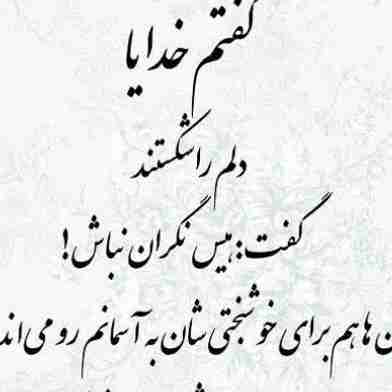 گفتم خدایا
دلم را شکستند
گفت: هیس نگران نباش!
هم برای خوشبختی شان به آسمانم رو می